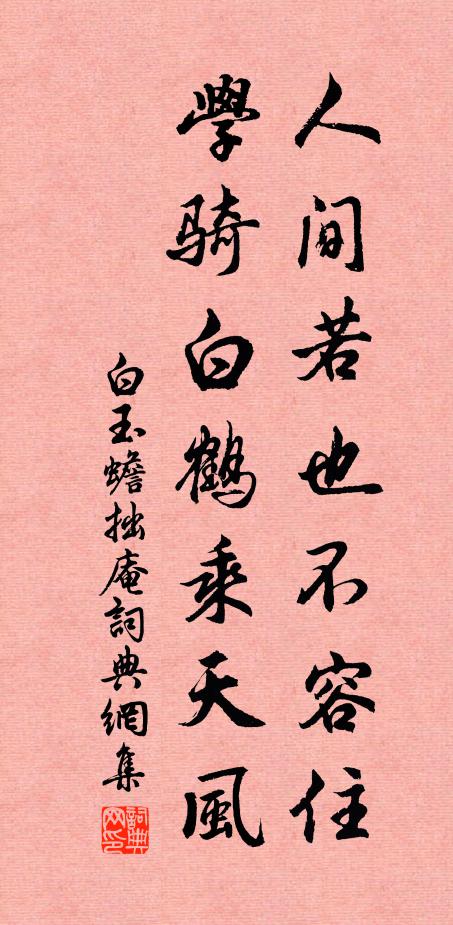 人间若也不容住
學骑白鹤乘天風
白玉蟾拙庵詞典網集
詞典网印